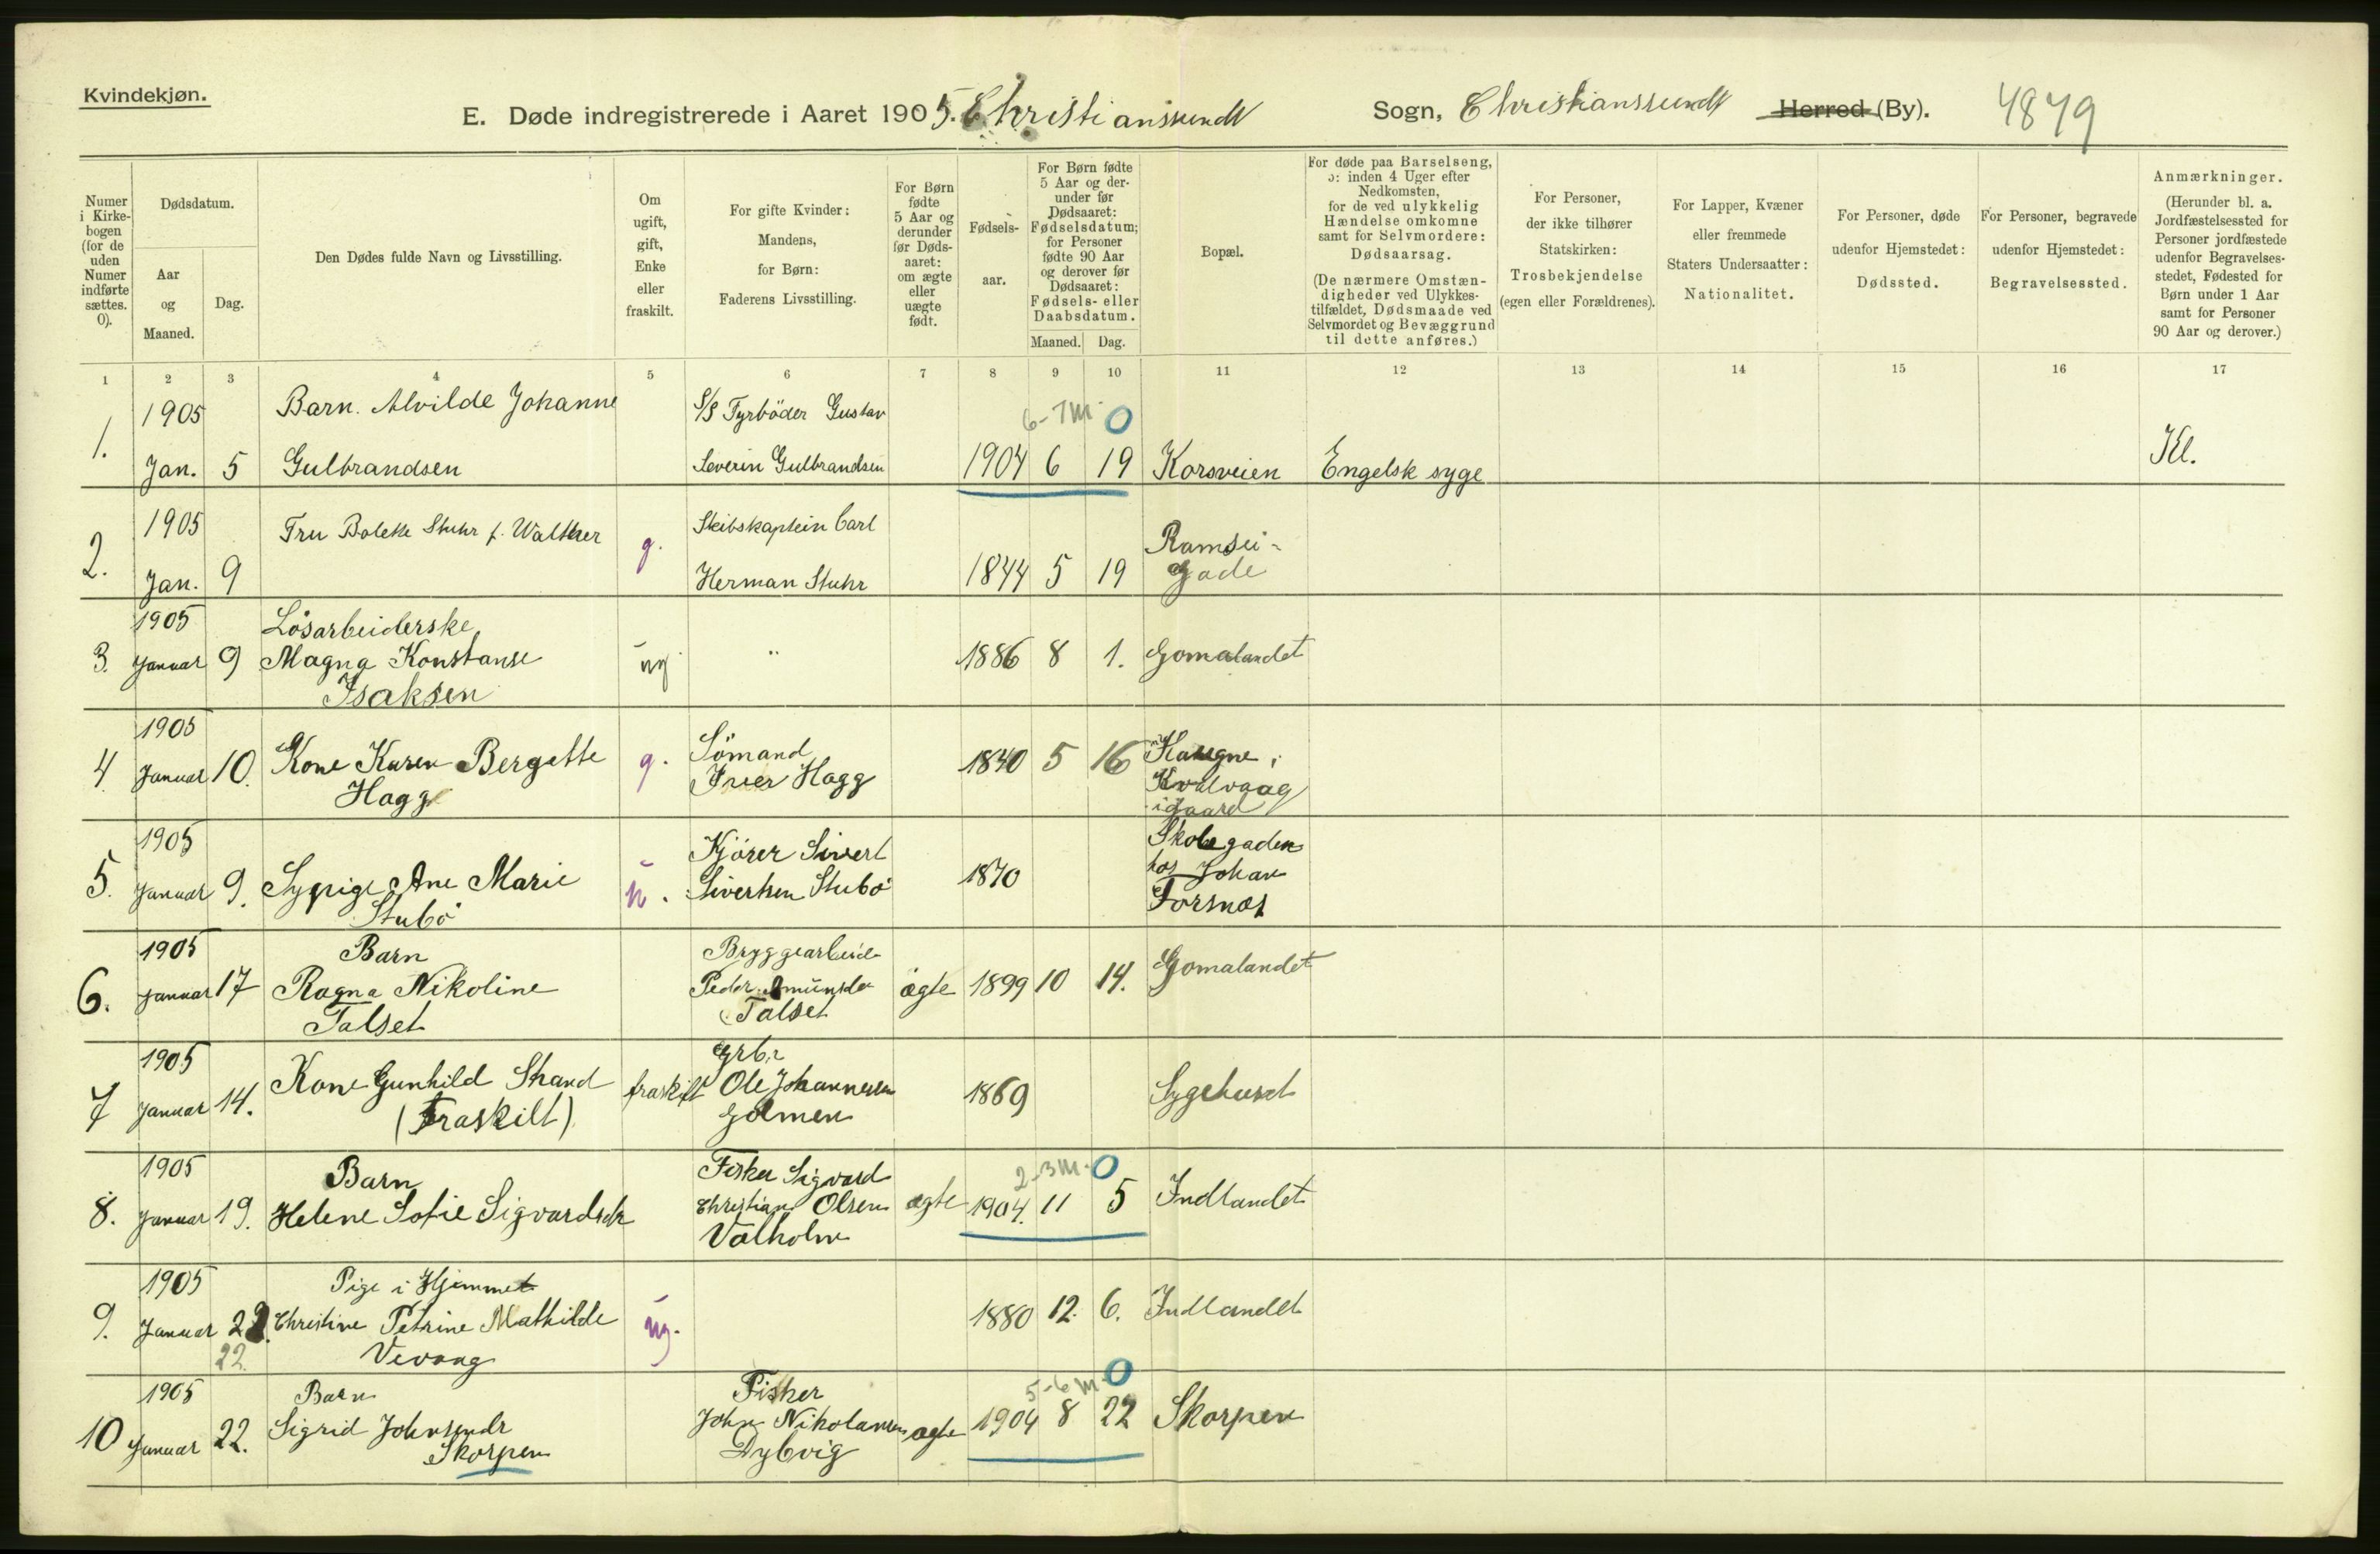 Kvindekjøn.
E. Døde indregistrerede i Aaret 1905. Christianssund Sogn, Christianssund Herred (By). 4879
Numer i Kirkebogen (for de uden Numer indførte sættes. 0).
Dødsdatum.
Aar og Maaned.
Dag.
Den Dødes fulde Navn og Livsstilling.
Om ugift, gift, Enke eller fraskilt.
For gifte Kvinder: Mandens, for Børn: Faderens Livsstilling.
For Børn fødte 5 Aar og derunder før Døds-aaret: om ægte eller uægte født.
Fødsels-aar.
For Børn fødte 5 Aar og der-under før Dødsaaret: Fødselsdatum; for Personer fødte 90 Aar og derover før Dødsaaret: Fødsels- eller Daabsdatum.
Maaned. Dag.
Bopæl.
For døde paa Barselseng, ɔ: inden 4 Uger efter Nedkomsten, for de ved ulykkelig Hændelse omkomne samt for Selvmordere: Dødsaarsag.
(De nærmere Omstæn-digheder ved Ulykkes-tilfældet, Dødsmaade ved Selvmordet og Bevæggrund til dette anføres.)
For Personer, der ikke tilhører Statskirken: Trosbekjendelse (egen eller Forældrenes).
For Lapper, Kvæner eller fremmede Staters Undersaatter: Nationalitet.
For Personer, døde udenfor Hjemstedet: Dødssted.
For Personer, begravede udenfor Hjemstedet: Begravelsessted.
Anmærkninger.
(Herunder bl. a. Jordfæstelsessted for Personer jordfæstede udenfor Begravelses-stedet, Fødested for Børn under 1 Aar samt for Personer 90 Aar og derover.)
1 2 3 4 5 6 7 8 9 10 11 12 13 14 15 16 17
1905 Barn. Alvilde Johanne S/S Fyrböder Gustav 6-7 m. 0
1. Jan. 5 Gulbrandsen Severin Gulbrandsen 1904 6 19 Korsveien Engelsk syge Kl.
1905 Fru Bolette Stuhr f. Walther g. Skibskaptein Carl Ramsei-
2. Jan. 9 Herman Stuhr 1844 5 19 gade
1905 Lösarbeiderske
3. Januar 9 Magna Konstanse ug " 1886 8 1. Gomalandet
Isaksen
1905
4. Januar 10. Kone Karen Bergette g. Sömand 1840 5 16
Hagg Iver Hagg Kvalvaag
igaard
1905 Kjörer Sivert Skolegaden
5. Januar 9. Sypige Ane Marie u. Sivertsen Stubö 1870 hos Johan
Stubö Forsnes
1905 Barn Bryggearbeid.
6. Januar 17 Ragna Nikoline Peder ægte 1899 10 14. Gomalandet
Talset Talset
1905 Grbr
7 Januar 14. Kone Gunhild Strand fraskilt Ole Johannesen 1869 Sygehuset
(Fraskilt) Golmen
1905 Barn Fisker Sigvard 2-3 m. 0
8. Januar 19. Helene Sofie Sigvardsdr Christian Olsen ægte 1904. 11 5 Indlandet
Valholm
1905 Pige i Hjemmet
9. Januar 22. Christine Petrine Mathilde ug. 1880 12. 6. Indlandet
22. Vevang
1905 Barn Fisker 5-6 m. 0
10 Januar 22. Sigrid Johnsendr John Nikolausen ægte 1904 8 22 Skorpen
Skorpen Dybvig